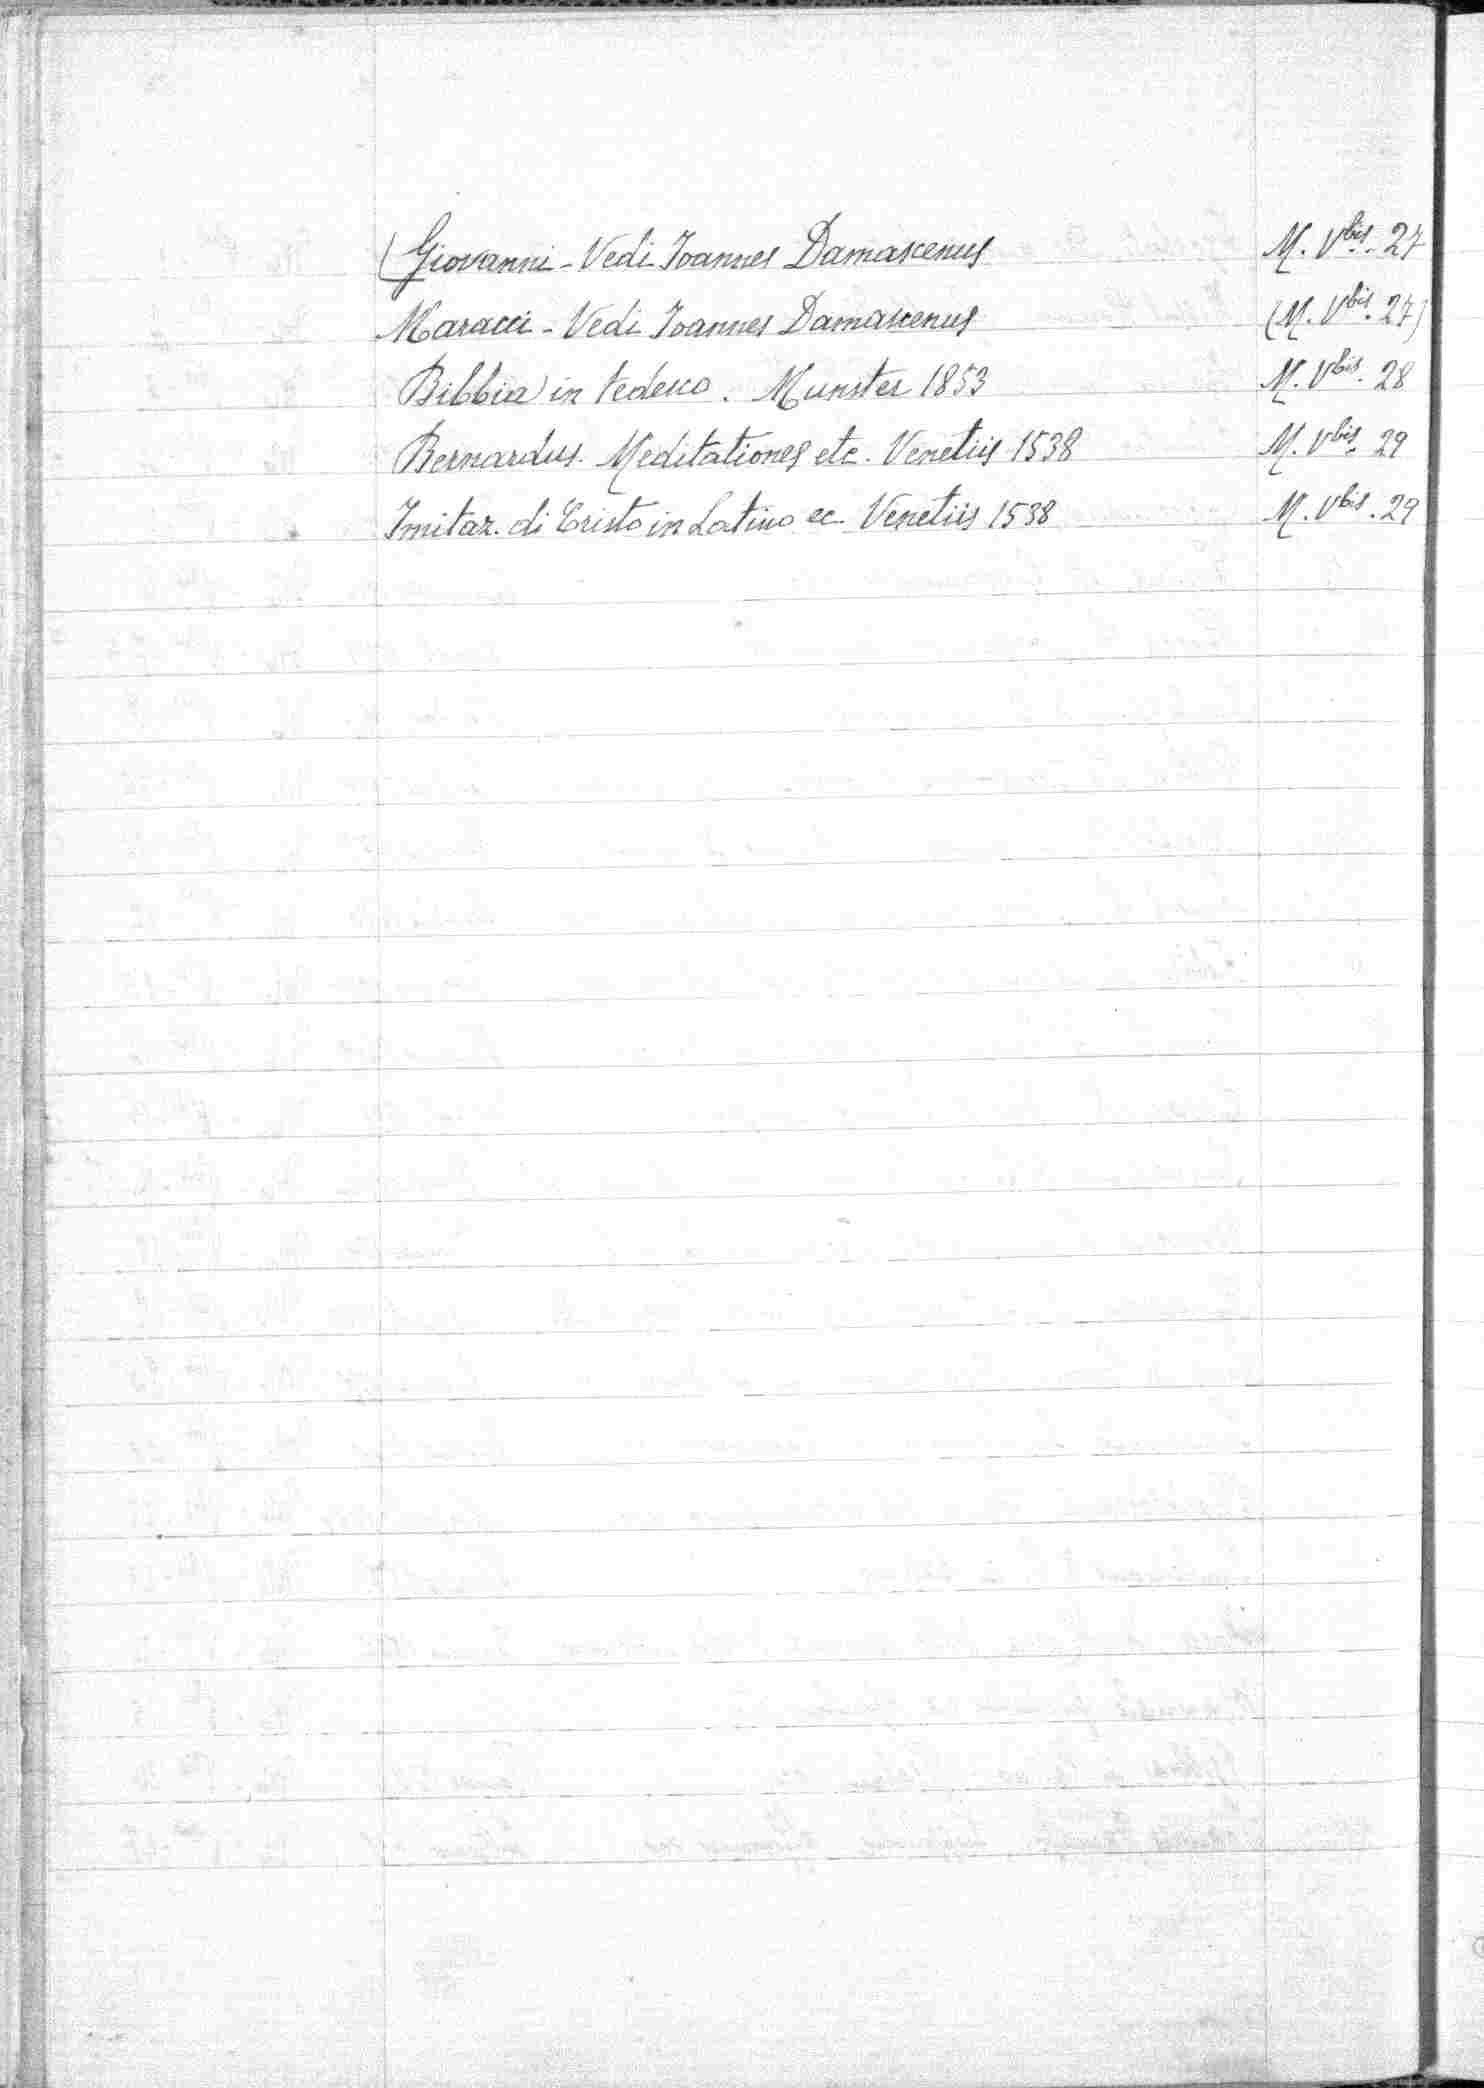 (Giovanni - Vedi Joannes Damascenus M. Vbis. 27
Maracci - Vedi Joannes Damascenus (M. Vbis. 27)
Bibbia in tedesco. Munster 1853 M. Vbis. 28
Bernardus. Meditationes etc. Venetiis 1538 M. Vbis. 29
Imitaz. di Cristo in Latino ec. Venetiis 1538 M. Vbis. 29